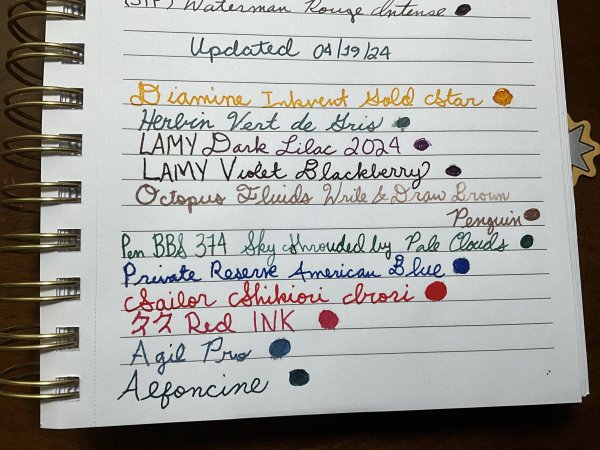 (STP) Waterman Rouge Intense
Updated 04/19/24
Diamine Inkvent Gold Star
Herbin Vert de Gris
LAMY Dark Lilac 2024
LAMY Violet Blackberry
Octopus Fluids Write & Draw Brown
Penguin
Pen BBS 374 Sky Shrouded by Pale Clouds
Private Reserve American Blue
Sailor Shikiori Irori
Red INK
Agil Pro
Aefoncine